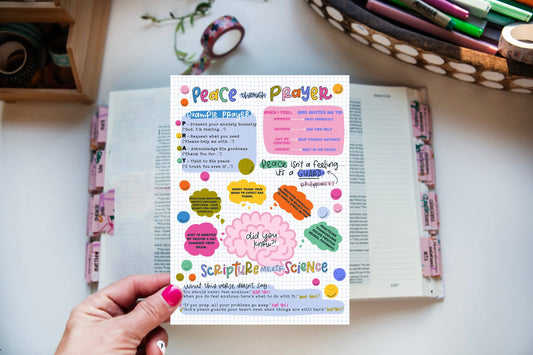 Peace through Prayer
Example Prayer
P - Present your anxiety honestly
("God, I'm feeling...")
R - Request what you need
("Please help me with...")
A - Acknowledge His goodness
("Thank You for...")
Y - Yield to His peace
("I trust You even if...")
WHEN I FEEL: GOD INVITES ME TO:
PRAY HONESTLY
ASK FOR HELP
OUT OF CONTROL GIVE THANKS ANYWAY
REST IN HIS PEACE
Peace isn't a feeling,
it's a GUARD
Philippians 4:7
WORRY TRAINS YOUR
BRAIN TO EXPECT BAD
THINGS.
JUST 10 MINUTES
OF PRAYER A DAY
CHANGES YOUR
BRAIN.
did you
know?!
SCRIPTURE meets SCIENCE
What this verse doesn't say:
"You should never feel anxious." Not this!
"When you do feel anxious, here's what to do with it." But this!
"If you pray, all your problems go away." Not this!
"God's peace guards your heart even when things are still hard." But this!